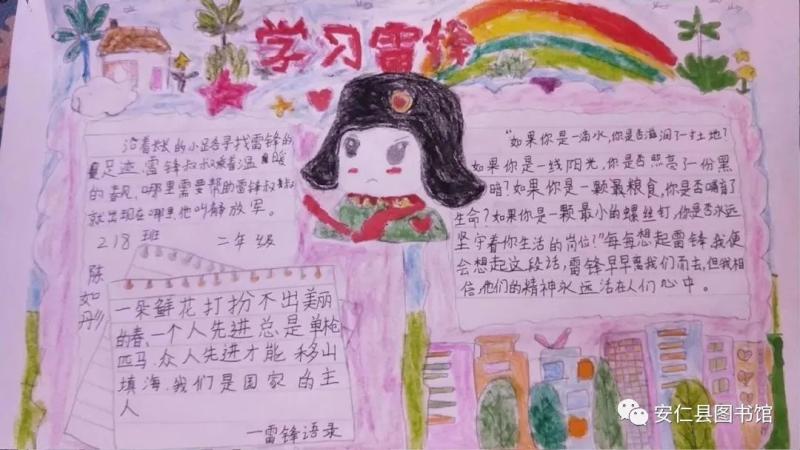 学习雷锋
沿着长长的小路寻找雷锋的
足迹,雷锋叔叔乘着温暖
的春风,哪里需要帮助雷锋叔叔
就出现在哪里他叫静放军。
218班 二年级
陈如丹
一朵鲜花打扮不出美丽
的春,一个人先进总是单枪
匹马,众人先进才能移山
填海,我们是国家的主
人
一雷锋语录
“如果你是一滴水,你是否滋润了一寸土地?
如果你是一线阳光,你是否照亮了一份黑
暗?如果你是一颗最粮食,你是否哺育了
生命?如果你是一颗最小的螺丝钉,你是否永远
坚守着你生活的岗位?”每每想起雷锋,我便
会想起这段话,雷锋早早离我们而去,但我相
信,他们的精神永远活在人们心中。
安仁县图书馆